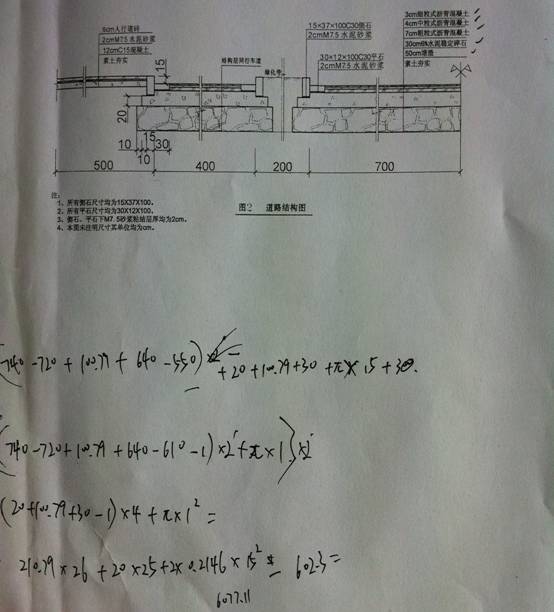 6cm人行道砖
2cmM7.5水泥砂浆
12cmC15混凝土
素土夯实
15
结构层同行车道
绿化带
15×37×100C30侧石
2cmM7.5水泥砂浆
30×12×100C30平石
2cmM7.5水泥砂浆
3cm细粒式沥青混凝土
4cm中粒式沥青混凝土
7cm粗粒式沥青混凝土
30cm6%水泥稳定碎石
50cm塘渣
素土夯实
20
15
10 30
10
500 400 200 700
注:
1、所有侧石尺寸均为15X37X100。
2、所有平石尺寸均为30X12X100。
3、侧石、平石下M7.5砂浆粘结层厚均为2cm。
4、本图未注明尺寸其单位均为cm。
图2 道路结构图
(740-720+100.79+640-550)
+20+100.79+30+π×15+30.
(740-720+100.79+640-610-1)×2+π×1}×2
(20+100.79+30-1)×4+π×1²=
210.79×26+20×25+2×0.2146×15²= 602.3=
6077.11